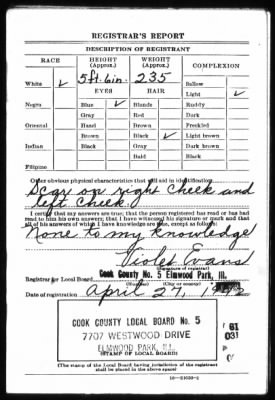 REGISTRAR'S REPORT
DESCRIPTION OF REGISTRANT
RACE HEIGHT (Approx.) WEIGHT (Approx.) COMPLEXION
5 ft. 6 in. 235 Sallow
White ✓ EYES HAIR Light ✓
Negro Blue ✓ Blonde Ruddy
Gray Red Dark
Oriental Hazel Brown Freckled
Brown Black ✓ Light brown
Indian Black Gray Dark brown
Bald Black
Filipino
Other obvious physical characteristics that will aid in identification
Scar on right cheek and
left cheek
I certify that my answers are true; that the person registered has read or has had
read to him his own answers; that I have witnessed his signature or mark and that
all of his answers of which I have knowledge are true, except as follows:
None to my knowledge
Violet Evans
(Signature of registrar)
Registrar for Local Board Cook County No. 5 Elmwood Park, Ill.
(Number) (City or county)
Date of registration April 27, 1942
COOK COUNTY LOCAL BOARD No. 5
7707 WESTWOOD DRIVE
ELMWOOD PARK, ILL.
(STAMP OF LOCAL BOARD)
(The stamp of the Local Board having jurisdiction of the registrant
shall be placed in the above space)